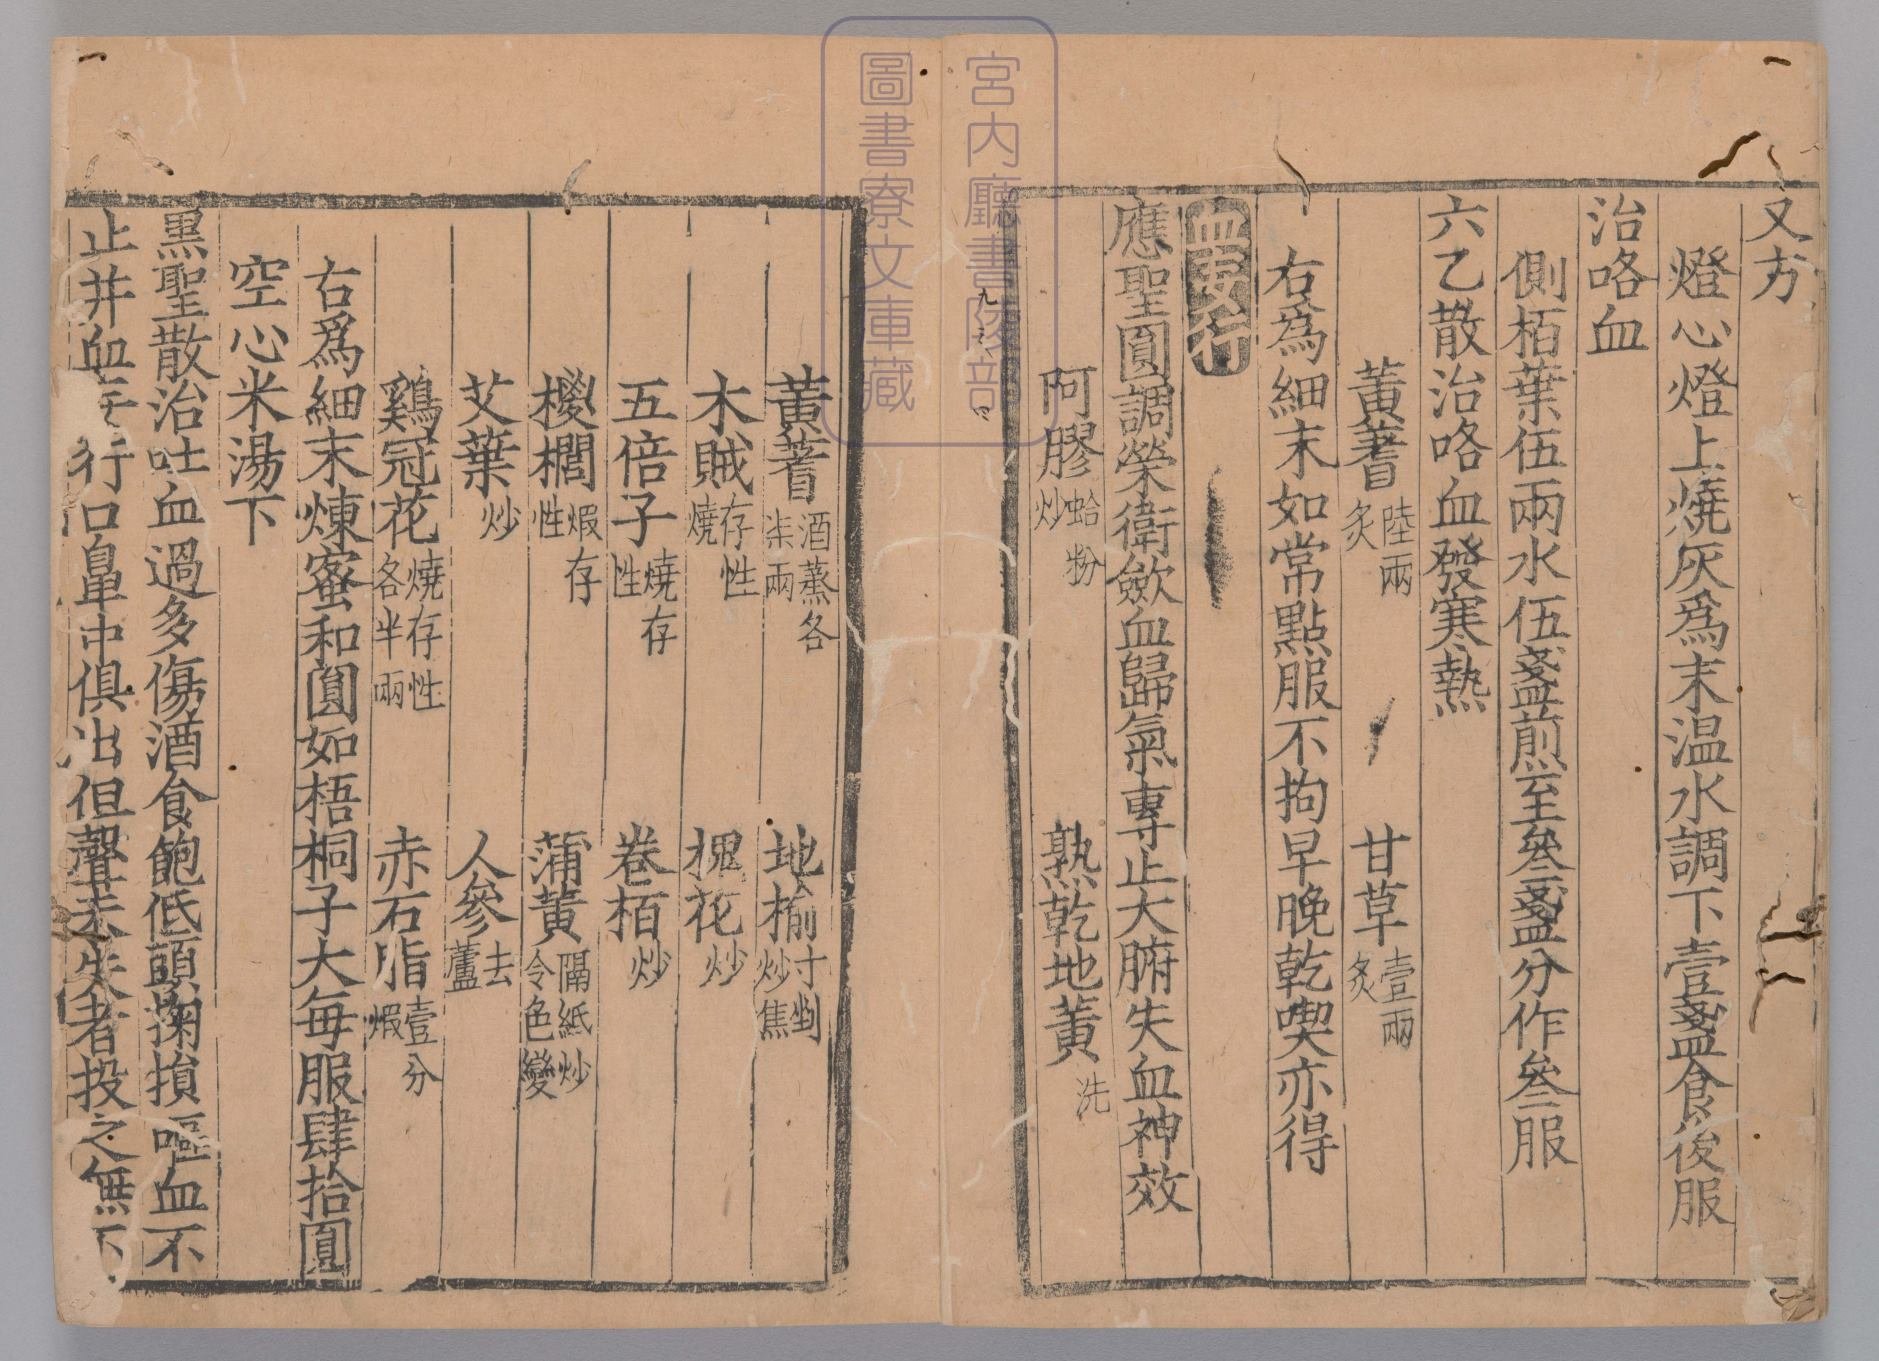 又方
燈心燈上燒灰爲末温水調下壹盞食後服
治咯血
側栢葉伍兩水伍盞煎至叄盞分作叄服
六乙散治咯血發寒熱
黃蓍陸兩炙 甘草壹兩炙
右為細末如常點服不拘早晚乾喫亦得
血妄行
應聖圓調榮衛歛血歸氣專止大腑失血神效
阿膠蛤粉炒 熟乾地黃洗
黃蓍酒蒸各柒兩 地榆寸剉炒焦
木賊存性燒 槐花炒
五倍子燒存性 卷栢炒
椶櫚煆存性 蒲黃隔紙炒令色變
艾葉炒 人參去蘆
鷄冠花燒存性各半兩 赤石脂壹分煆
右爲細末煉蜜和圓如梧桐子大每服肆拾圓
空心米湯下
黑聖散治吐血過多傷酒食飽低頭掬損嘔血不
止并血行口鼻中俱出但聲未失者投之無不
宮内廳書陵部
圖書寮文庫藏